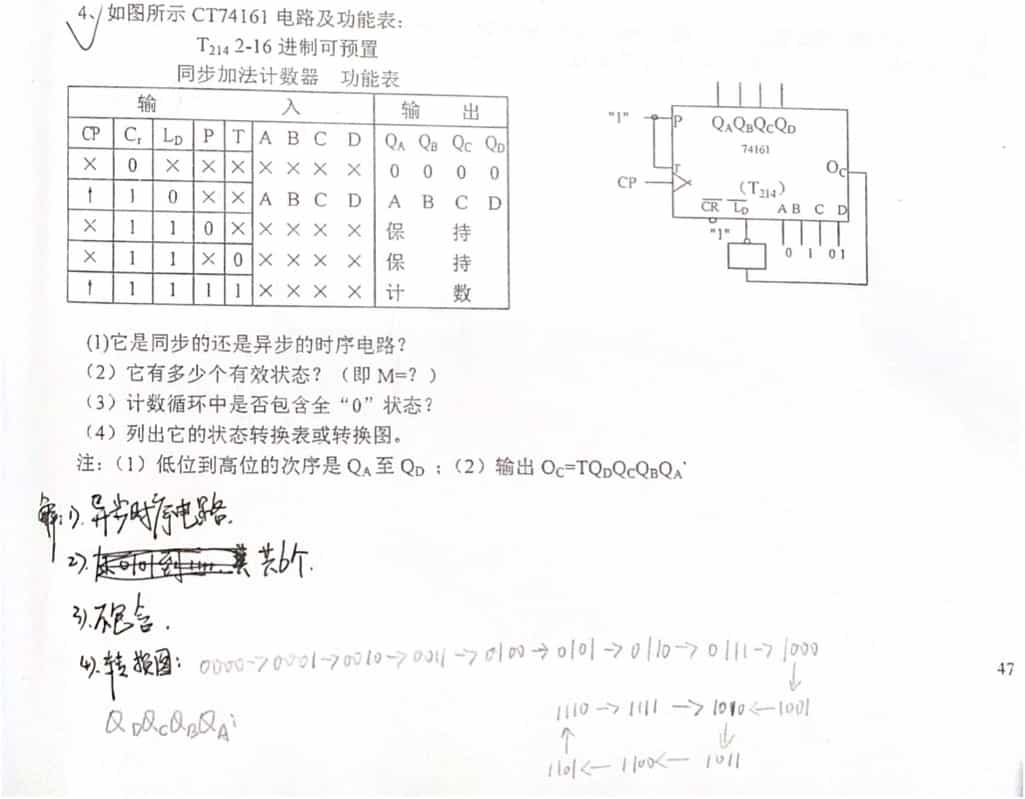 4、如图所示 CT74161 电路及功能表：
T214 2-16 进制可预置
同步加法计数器 功能表
输 入 输 出
CP Cr LD P T A B C D QA QB QC QD
× 0 × × × × × × × 0 0 0 0
↑ 1 0 × × A B C D A B C D
× 1 1 0 × × × × × 保 持
× 1 1 × 0 × × × × 保 持
↑ 1 1 1 1 × × × × 计 数
"1" P QAQBQCQD
74161
T OC
CP (T214)
CR LD A B C D
"1" 0 1 0 1
(1)它是同步的还是异步的时序电路？
（2）它有多少个有效状态？（即 M=？）
（3）计数循环中是否包含全“0”状态？
（4）列出它的状态转换表或转换图。
注:（1）低位到高位的次序是 QA 至 QD；（2）输出 OC=TQDQCQBQA
解:1). 异步时序电路.
2). 共6个.
3). 不包含.
4). 转换图: 0000→0001→0010→0011→0100→0101→0110→0111→1000
↓
47
QDQCQBQA:
1110→1111→1010←1001
↑ ↓
1101←1100←1011